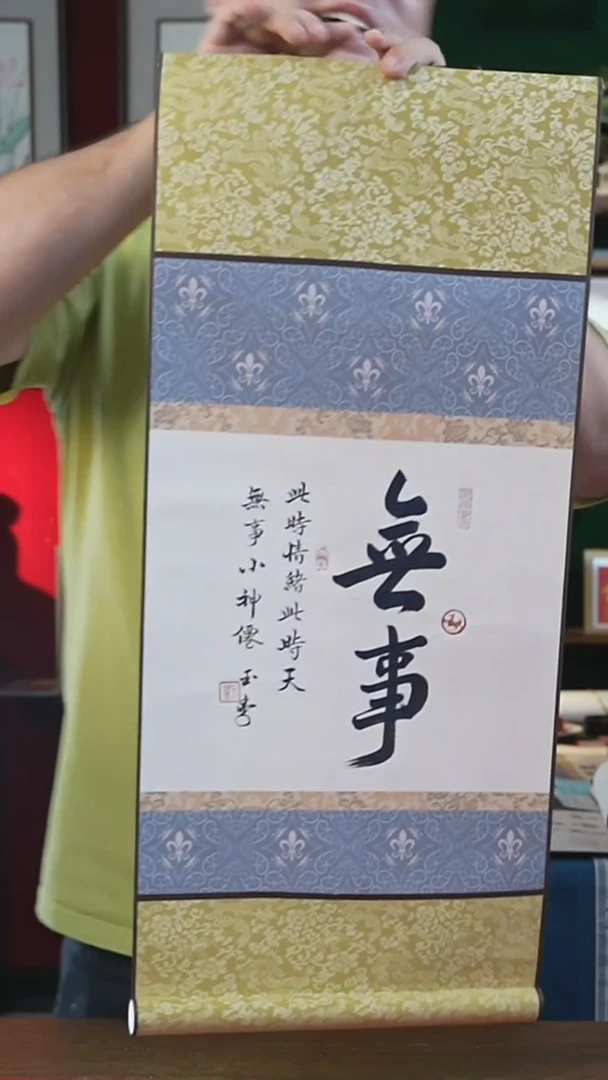 無事
此時情緒此時天
無事小神僊